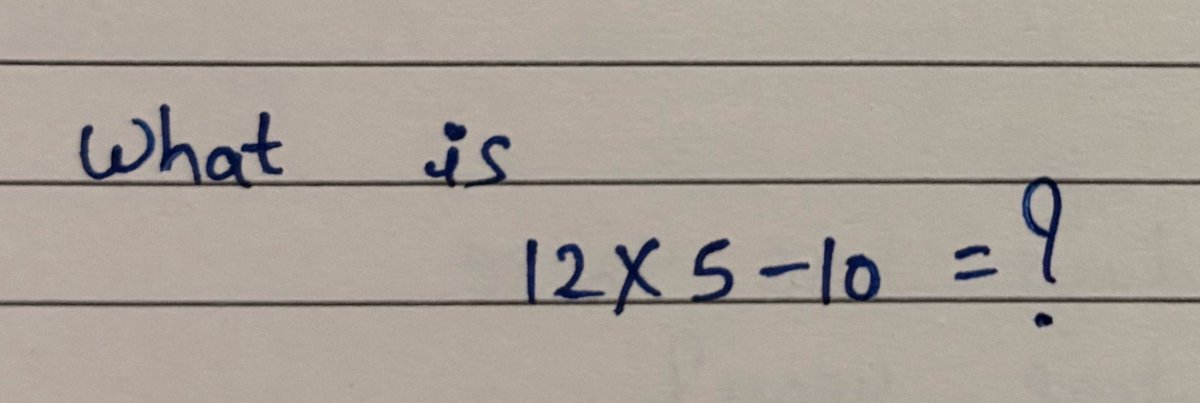 What is
12 × 5 - 10 = ?